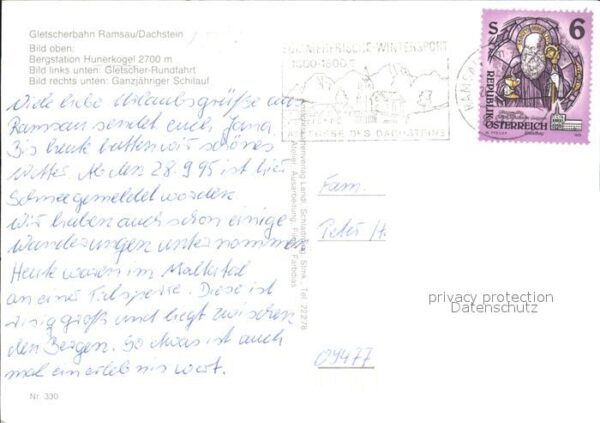 Gletscherbahn Ramsau/Dachstein
Bild oben:
Bergstation Hunerkogel 2700 m
Bild links unten: Gletscher-Rundfahrt
Bild rechts unten: Ganzjähriger Schilauf
Viele liebe Urlaubsgrüße aus
Ramsau sendet euch, Jana.
Bis heute hatten wir schönes
Wetter. Ab den 28.9.95 ist hier
Schnee gemeldet worden.
Wir haben auch schon einige
Wanderungen unternommen.
Heute waren im Maltatal
an einer Talsperre. Diese ist
riesig groß und liegt zwischen
den Bergen. So etwas ist auch
mal ein erlebnis wert.
Nr. 330
WINTERSPORT
DES DACHSTEINS
RAMSAU
S 6
REPUBLIK
ÖSTERREICH
Landl, Schladming, Tel. 22278
Fam.
Peter H.
privacy protection
Datenschutz
09477